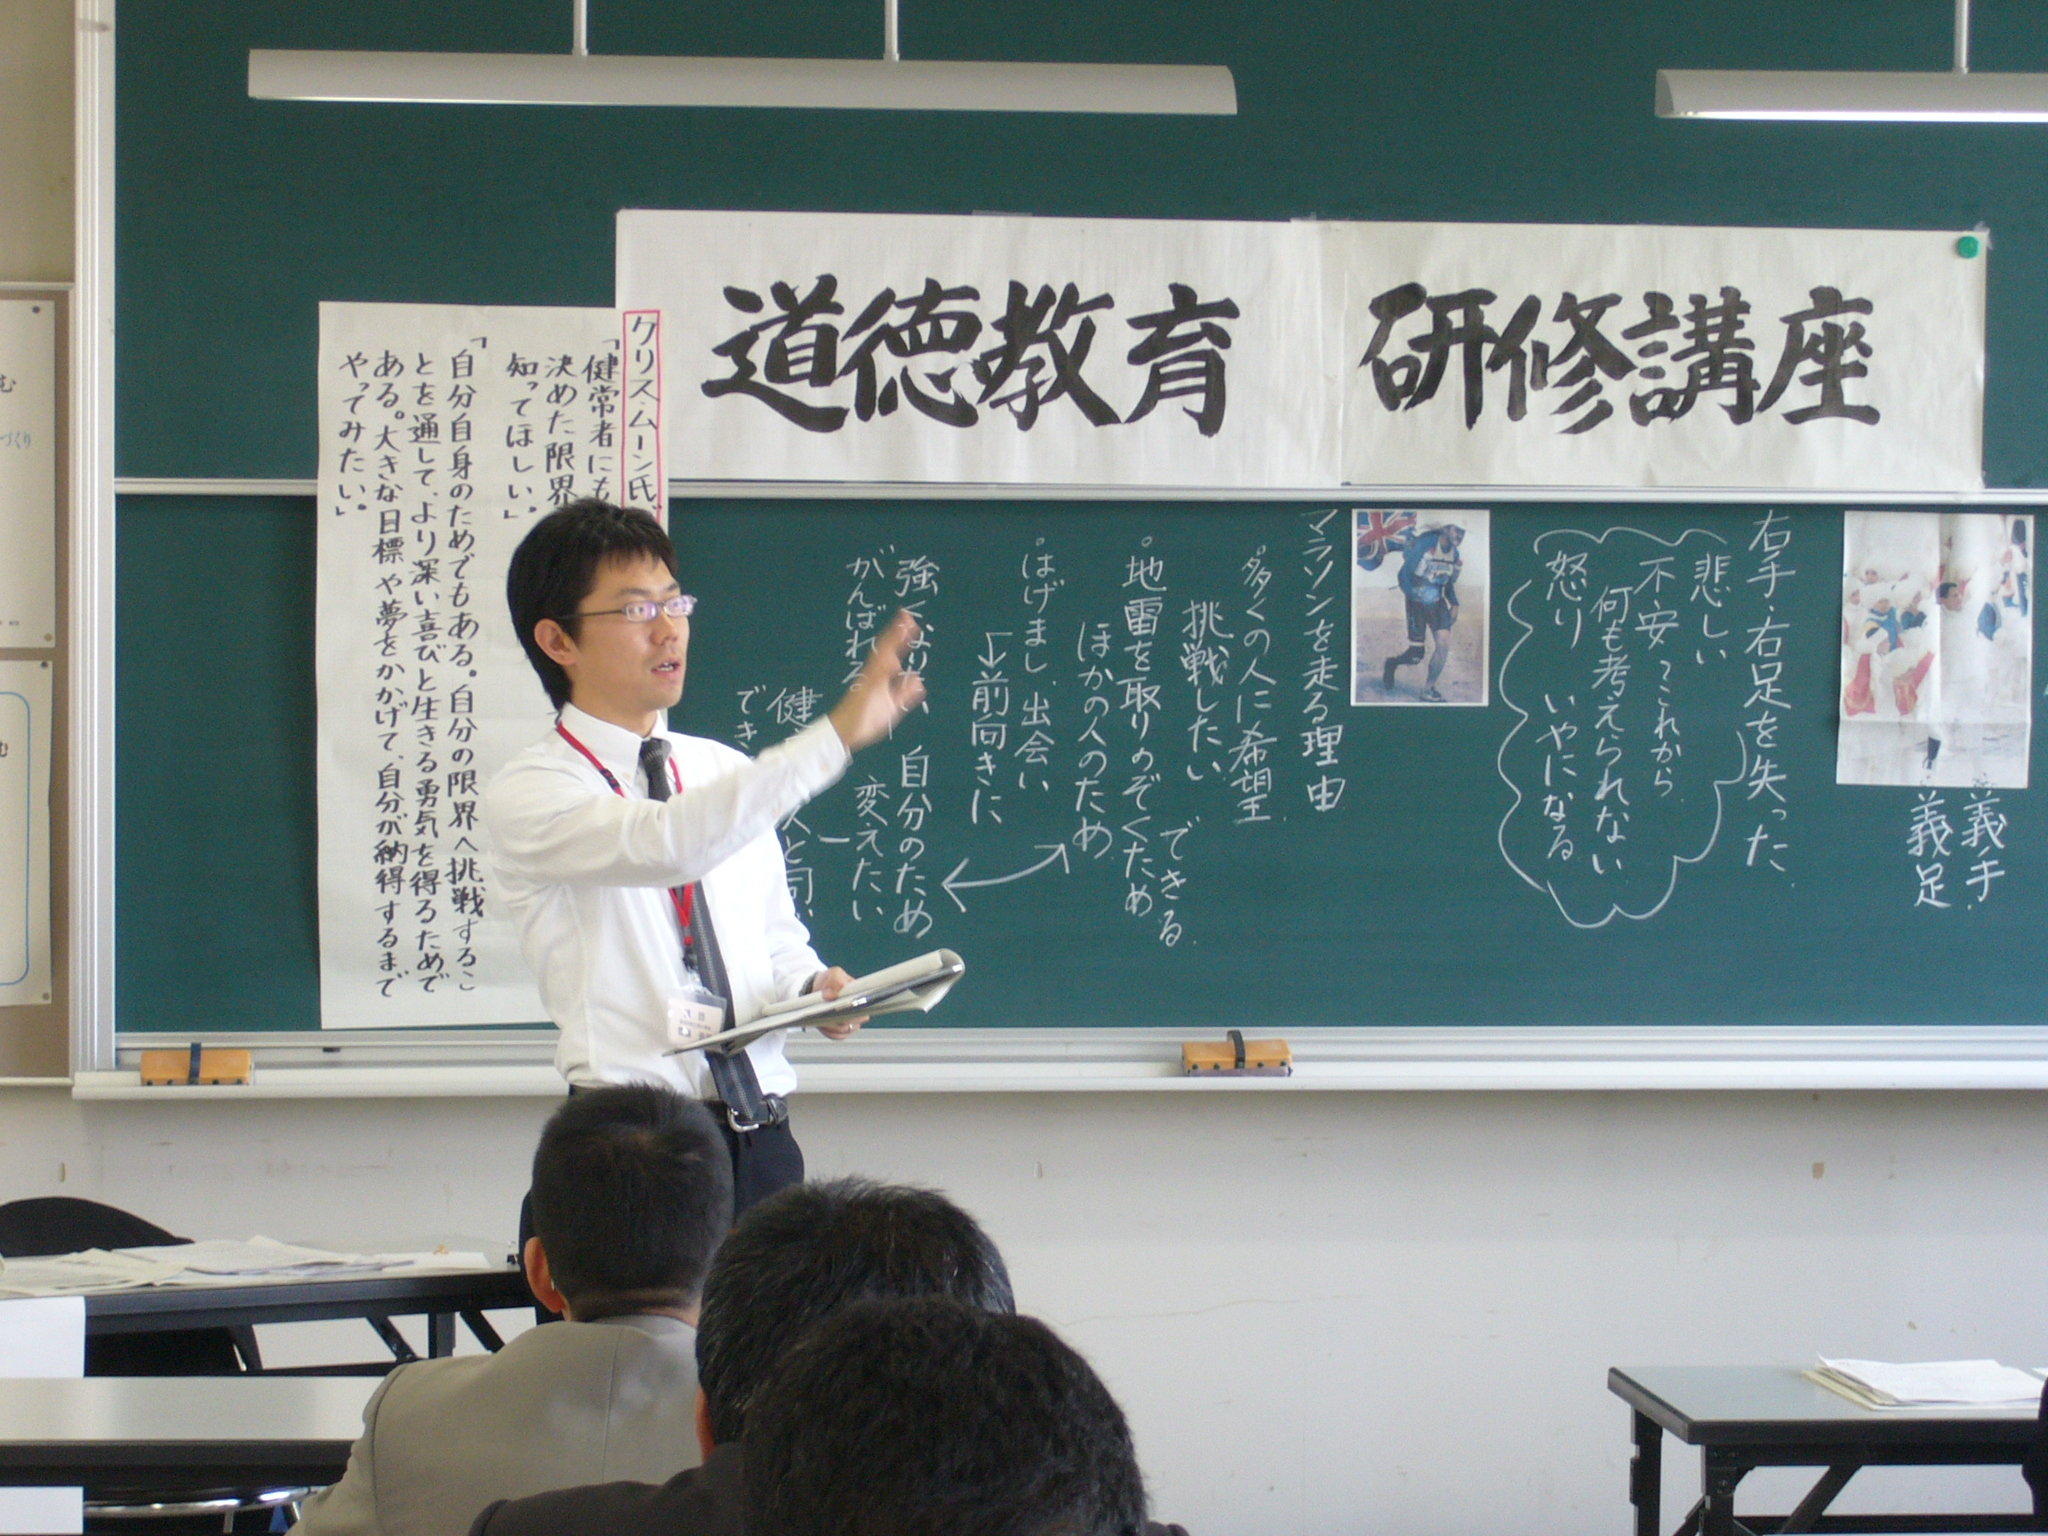 道徳教育 研修講座
義手
義足
右手・右足を失った
悲しい
不安 これから
何も考えられない
怒り いやになる
マラソンを走る理由
多くの人に希望
挑戦したい できる
地雷を取りのぞくため
ほかの人のため
はげまし 出会い
前向きに
強くなりたい 自分のため
がんばれる 変えたい
クリス・ムーン氏
「健常者にも
決めた限界
知ってほしい。」
「自分自身のためでもある。自分の限界へ挑戦するこ
とを通して、より深い喜びと生きる勇気を得るためで
ある。大きな目標や夢をかかげて、自分が納得するまで
やってみたい。」